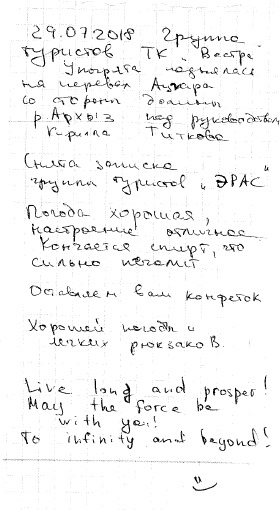 29.07.2018 Группа
туристов ТК „Вестра"
Упырята поднялась
на перевал Ацгара
со стороны долины
р. Архыз под руководством
Кирилла Титкова

Снята записка
группы туристов „ЭРАС"

Погода хорошая,
настроение отличное.
Кончается спирт, что
сильно печалит

Оставляем вам конфеток

Хорошей погоды и
легких рюкзаков.

Live long and prosper!
May the force be
with you!
To infinity and beyond!